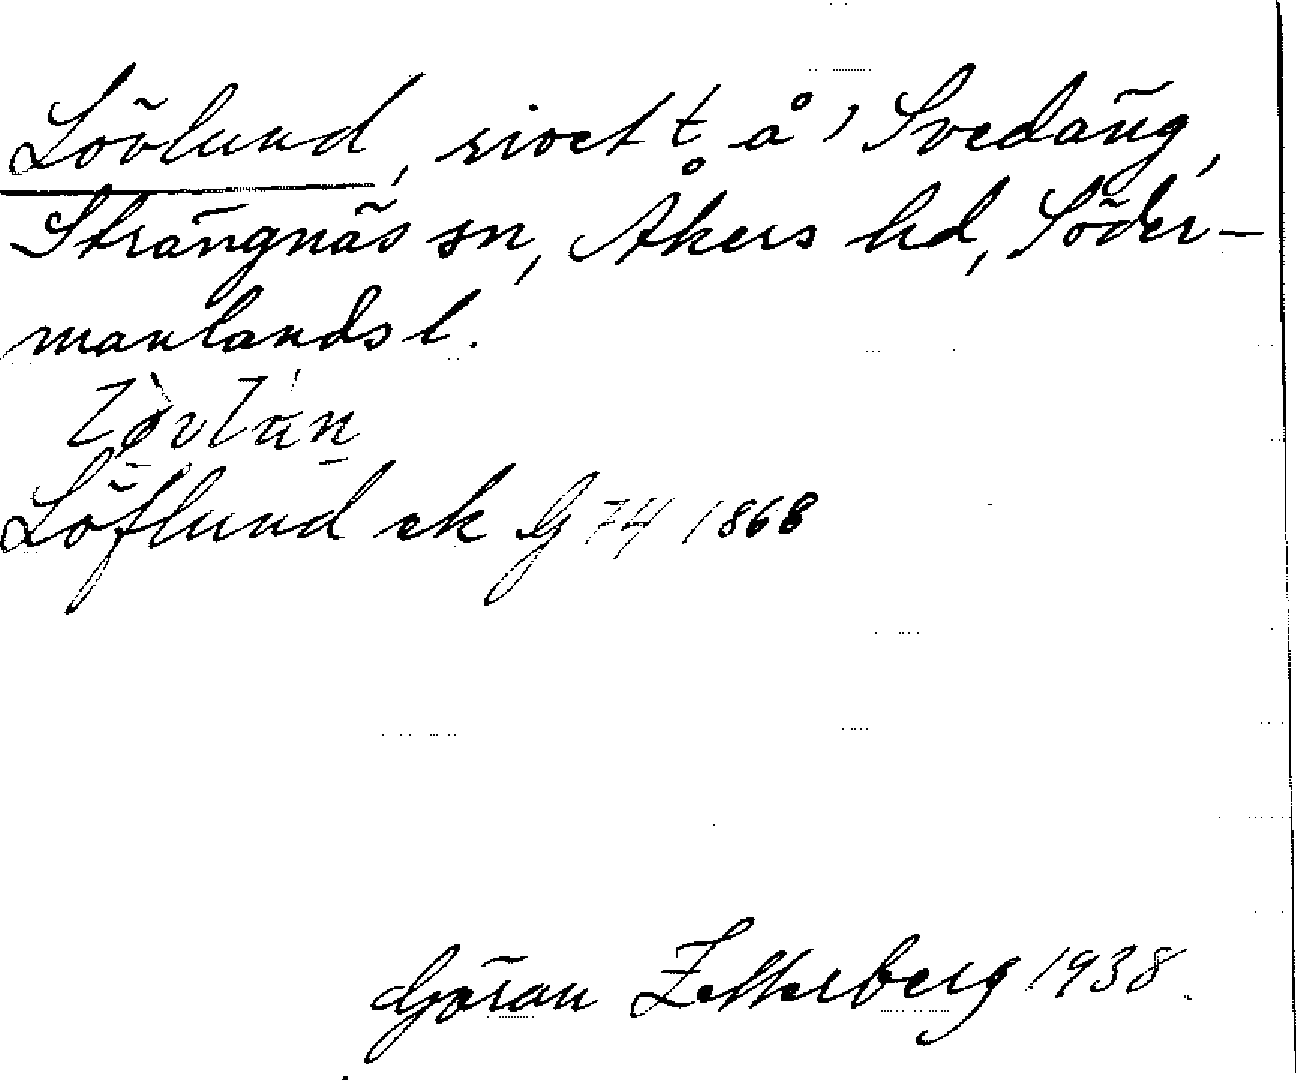 Lövlund, rivet t å 1 Svedäng,
Strängnäs sn, Åkers hd, Söder-
manlands l.
Löflund ek G 74 1868
Göran Zetterberg 1938.